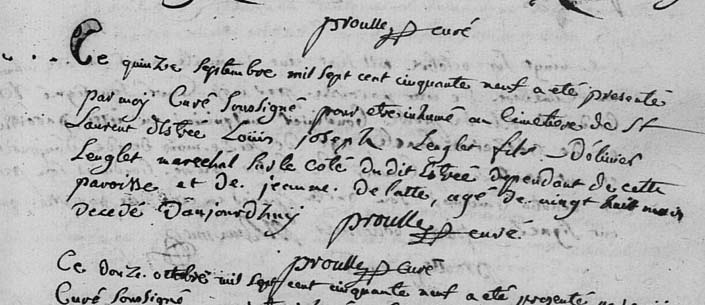 proulle curé
Ce quinzie septembre mil sept cent cinquante neuf a eté presenté
par moy Curé soussigné pour etre inhumé au cimetiere de St
Laurent d'Estréé Louis joseph Lenglet fils D'olivier
Lenglet marechal sur le coté dudit Estréé dependant de cette
paroisse et de jeanne Delatte, agé de vingt huit mois
decedé D'aujourd'huy
proulle curé
proulle curé
Ce douze octobre mil sept cent cinquante neuf a eté presenté
Curé soussigné